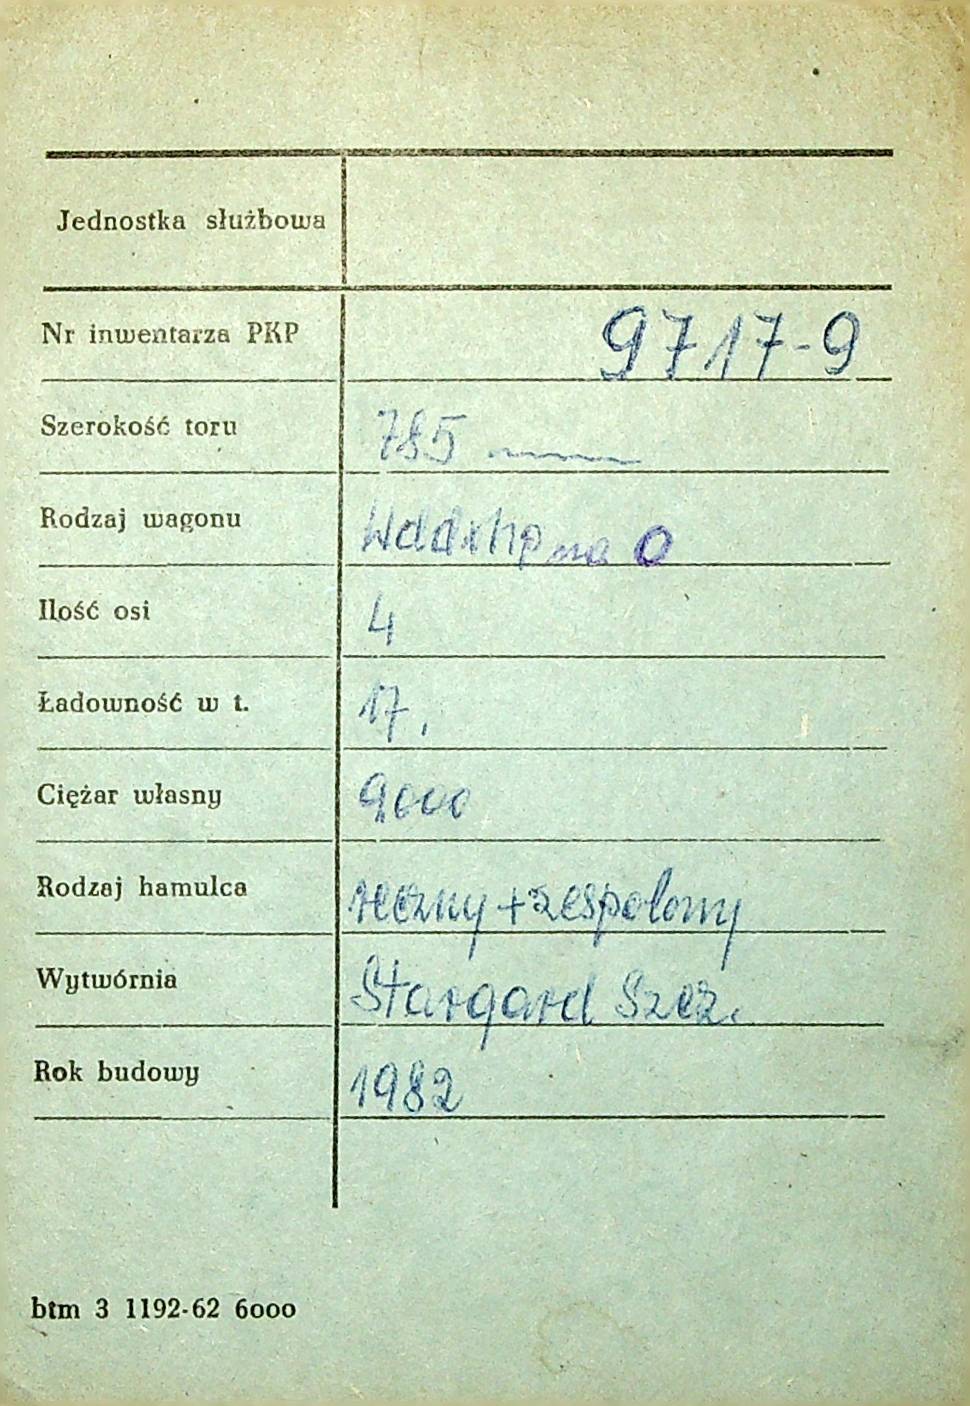 Jednostka służbowa
Nr inwentarza PKP 9717-9
Szerokość toru 785 mm
Rodzaj wagonu Wddxhp na O
Ilość osi 4
Ładowność w t. 17,
Ciężar własny 9000
Rodzaj hamulca ręczny + zespolony
Wytwórnia Stargard Szcz.
Rok budowy 1982
btm 3 1192-62 6000